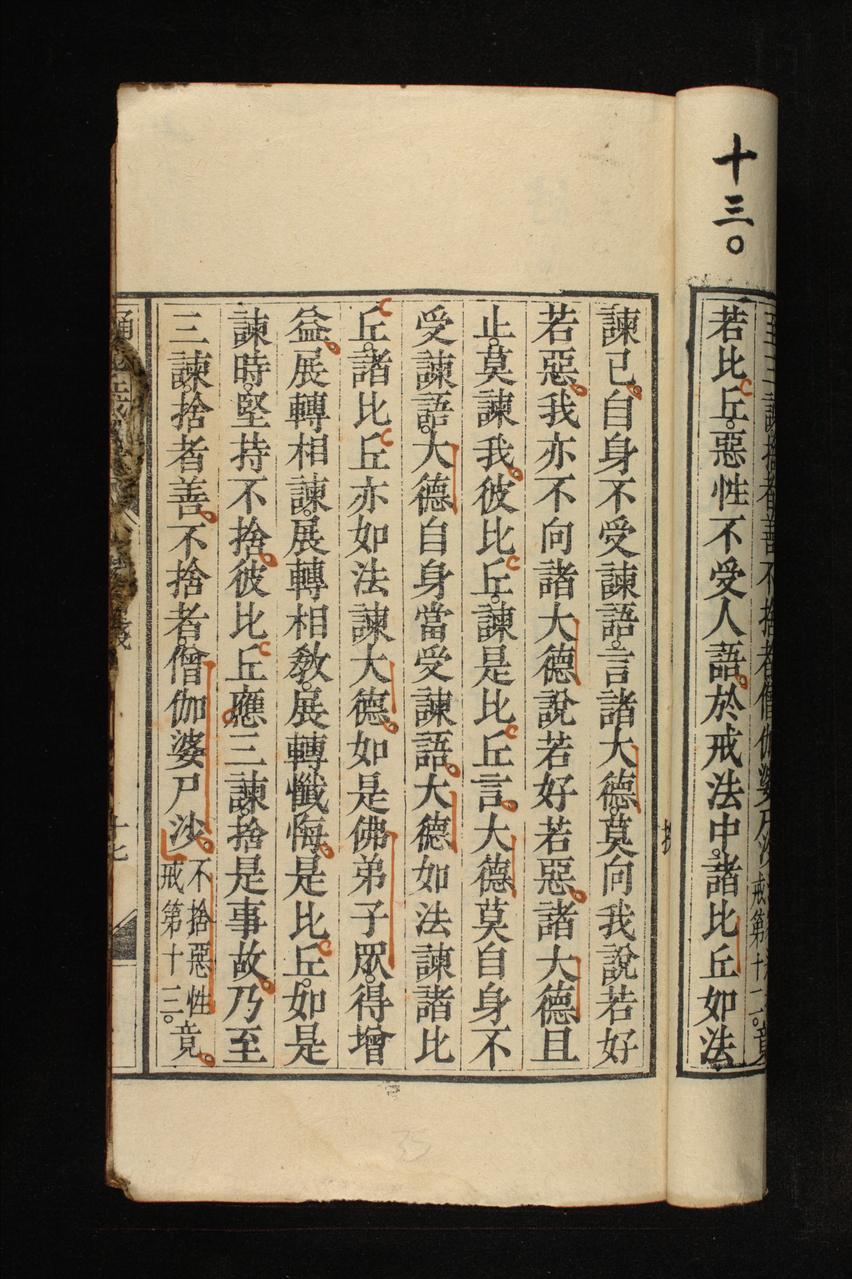 十三。
至三諫捨者善不捨者僧伽婆尸沙
戒第十二。竟
若比丘。惡性不受人語。於戒法中。諸比丘如法
諫已。自身不受諫語。言諸大德。莫向我說若好
若惡。我亦不向諸大德說若好若惡。諸大德且
止。莫諫我。彼比丘。諫是比丘言。大德莫自身不
受諫語。大德自身當受諫語。大德如法諫諸比
丘。諸比丘亦如法諫大德。如是佛弟子眾。得增
益。展轉相諫。展轉相教。展轉懺悔。是比丘。如是
諫時。堅持不捨。彼比丘應三諫。捨是事故。乃至
三諫。捨者善。不捨者。僧伽婆尸沙。
不捨惡性
戒第十三。竟。
十七
35